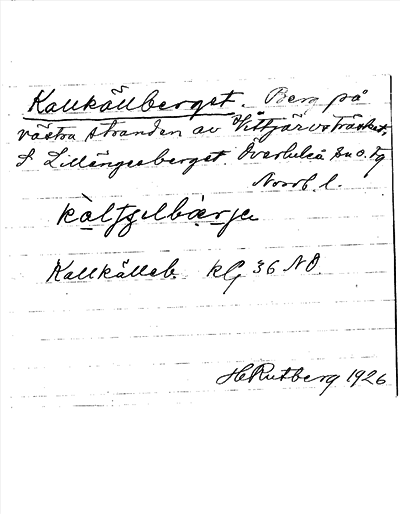 Kallkällberget. Berg på
västra stranden av Vittjärvsträsket,
S Lillängesberget. Överluleå sn o. tg
Norrb. l.
Kallkälleb. kg 36 NO.
HRutberg 1926